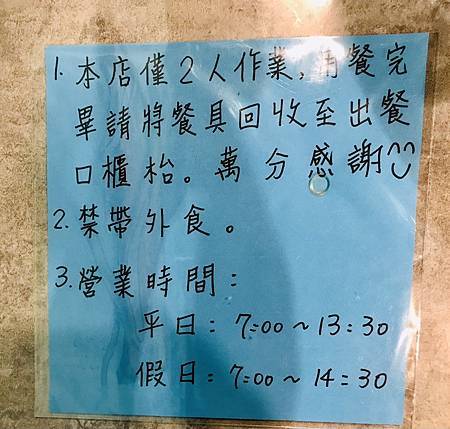 1. 本店僅2人作業,用餐完
畢請將餐具回收至出餐
口櫃枱。萬分感謝
2. 禁帶外食。
3. 營業時間:
平日: 7:00~13:30
假日: 7:00~14:30